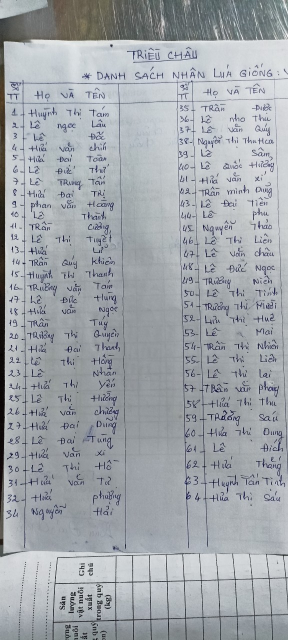 TRIỀU CHÂU
* DANH SÁCH NHÂN LÚA GIỐNG: V
Số TT HỌ VÀ TÊN
1- Huỳnh Thị Tám
2- Lê Ngọc Lâu
3- Lê Đốc
4- Hứa văn chín
5- Hứa Đại Toàn
6- Lê Đức Thứ
7- Lê Trung Tấn
8- Hứa Đại Trí
9- phan văn Hoàng
10- Lê Thành
11- Trần Cường
12- Lê Thị Tuyết
13- Hứa
14- Trần Quý Khiên
15- Huỳnh Thị Thanh
16- Trường văn Tám
17- Lê Đức Hùng
18- Hứa văn Ngọc
19- Trần Tuy
20- Trường Thị Quyên
21- Hứa Đại Thanh
22- Lê Thị Hồng
23- Lê Nhân
24- Hứa Thị Yến
25- Lê Thị Hường
26- Hứa văn chường
27- Hứa Đại Dũng
28- Lê Đại Tùng
29- Hứa văn xi
30- Lê Thị Hổ
31- Hứa văn Tư
32- Hứa phường
34 Nguyễn Hải
Số TT HỌ VÀ TÊN
35- Trần Được
36- Lê nho Thu
37- Lê văn Quý
38- Nguyễn Thị Thu Hoa
39- Lê Sâm
40- Lê Quốc Hường
41- Hứa văn xi
42- Trần minh
43- Lê Đại Tiên
44- Lê phu
45- Nguyễn Thảo
46- Lê Thị Liên
47- Lê văn châu
48- Lê Đức Ngọc
49- Trường Niên
50- Lê Thị Tính
51- Trường Thị
52- Thị Huế
53- Lê Mai
54- Trần Thị Nhiên
55- Lê Thị Liên
56- Lê Thị Lai
57- Trần văn phong
58- Hứa Thị Thu
59- Trường Sáu
60- Hứa Thị Dung
61- Lê Đích
62- Hứa Thắng
63- Huỳnh Tấn Tính
64- Hứa Thị Sáu
Sản lượng vật nuôi xuất trong quý (kg)
Ghi chú